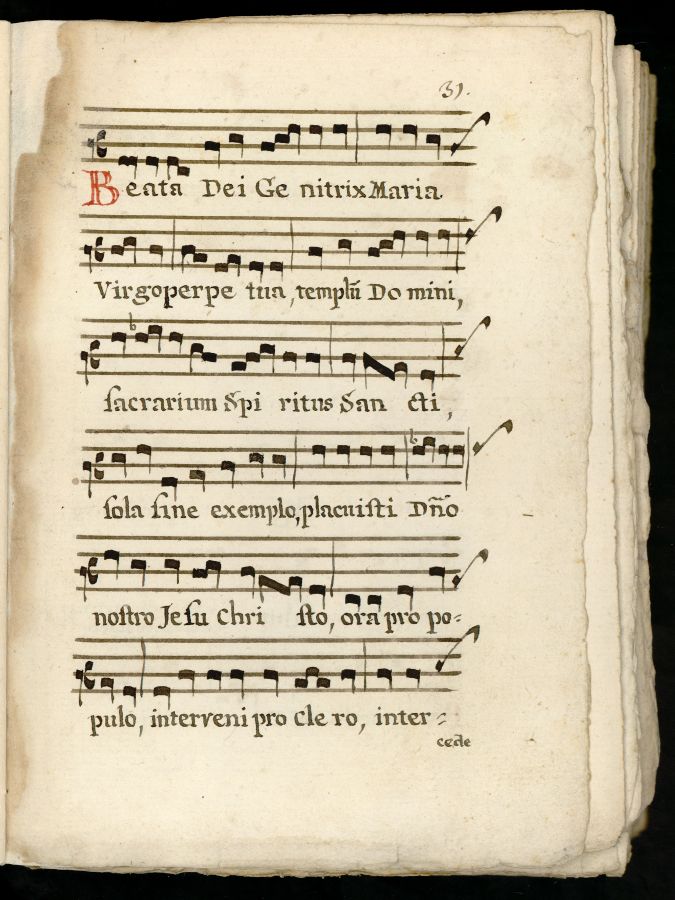 31.
Beata Dei Ge nitrix Maria
Virgo perpe tua, templũ Do mini,
ſacrarium Spi ritus San cti,
ſola ſine exemplo, placuiſti Dño
noſtro Jeſu Chri ſto, ora pro po-
pulo, interveni pro Cle ro, inter-
cede